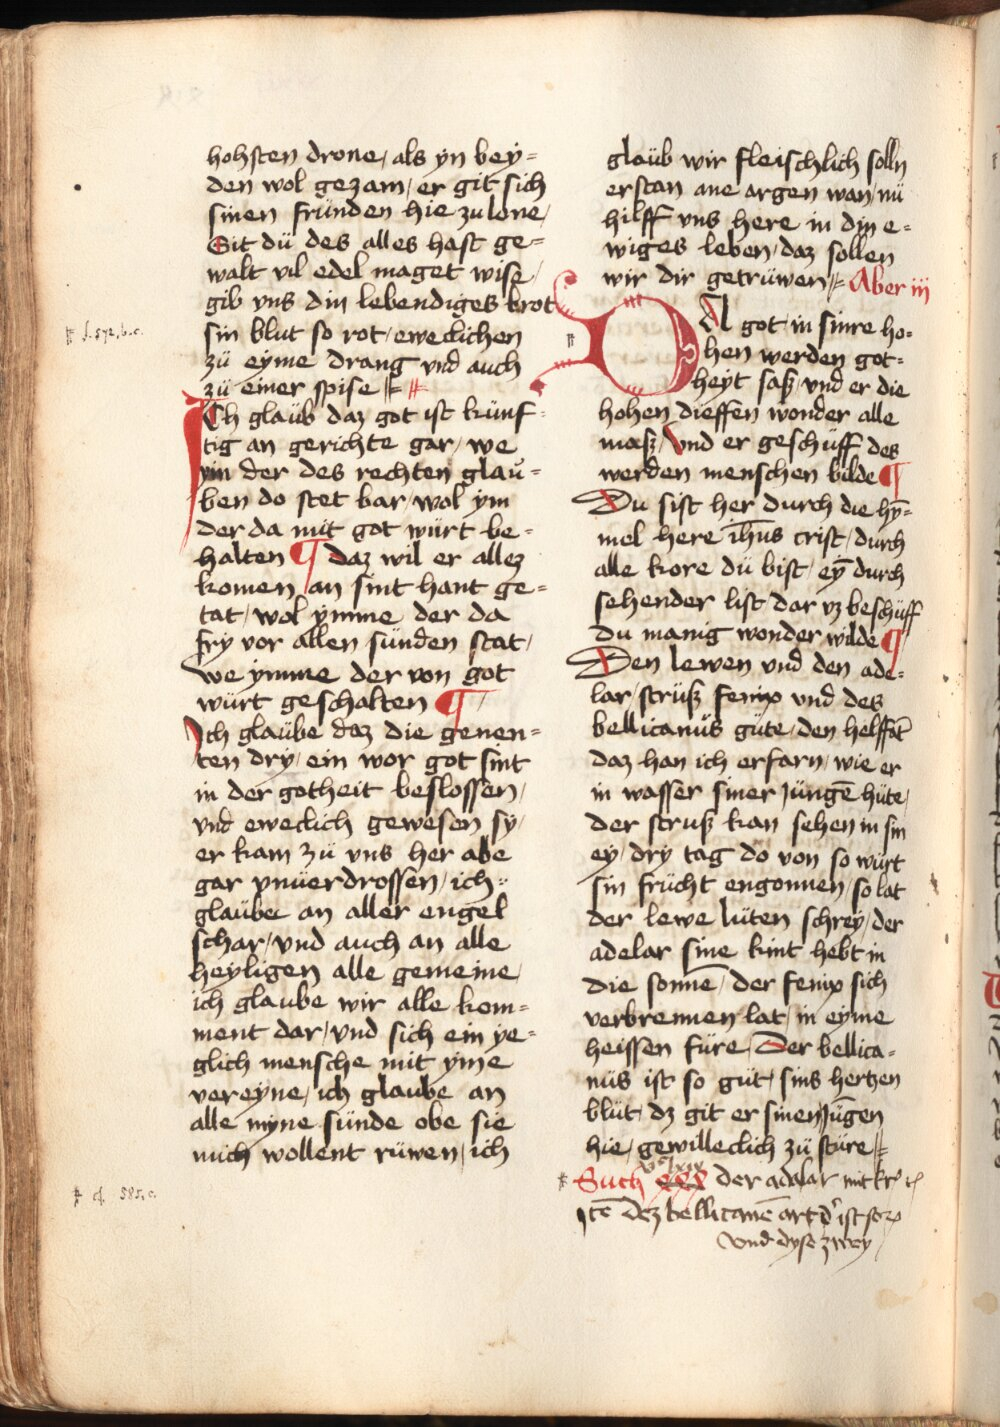 hohsten drone / als yn bey=
den wol gezam / er git sich
sinen fründen hie zu lone /
Sit dü des alles hast ge=
walt vil edel maget wise /
gib vns din lebendiges brot
sin blut so rot / eweclichen
zü eyme drang vnd auch
zü einer spise
Ich glaüb daz got ist künf=
tig an gerichte gar / we
ym der des rechten glau=
ben do stet bar / wol ym
der da mit got würt be=
halten ¶ daz wil er allez
komen an sint hant ge=
tat / wol ymme der da
fry vor allen sünden stat /
we ymme der von got
würt geschalten ¶
Ich glaübe daz die genen=
ten dry / ein wor got sint
in der gotheit beslossen /
vnd eweclich gewesen sy /
er kam zü vns her abe
gar vnüerdrossen / ich
glaübe an aller engel
schar / vnd auch an alle
heyligen alle gemeine /
ich glaube wir alle kom=
ment dar / vnd sich ein ye=
glich mensche mit yme
vereyne / ich glaube an
alle myne sünde obe sie
mich wollent rüwen / ich
glaüb wir fleischlich solln
erstan ane argen wan / nü
hilff vns here in din e=
wiges leben / daz sollen
wir dir getrüwen Aber iij
DA got in sinre ho=
hen werden got=
heyt sasz / vnd er die
hohen dieffen wonder alle
masz / Vnd er geschüff des
werden menschen bilde ¶
Du sist her durch die hy̅=
mel here ih̅us crist / durch
alle kore dü bist / ey̅ durch
sehender list dar vz beschüff
du manig wonder wilde ¶
Den lewen vnd den ade=
lar / strüsz fenix vnd des
bellicanüs güte / den helffa̅t
daz han ich erfarn / wie er
in wasser siner Jünge̅ hüte /
der strusz kan sehen in sin
ey / dry tag do von so würt
sin frücht engonnen / so lat
der lewe lüten schrey / der
adelar sine kint hebt in
die sonne̅ / der fenix sich
verbrennen lat / in eyme
heissen füre / Der bellica=
nüs ist so güt / sins hertzen
blüt / dz git er sinen Jüngen
hie / gewilleclich zü stüre
Such der adalar mit
dez bellicane̅ art ist
vnd dyse zwey
cf. 585, c.